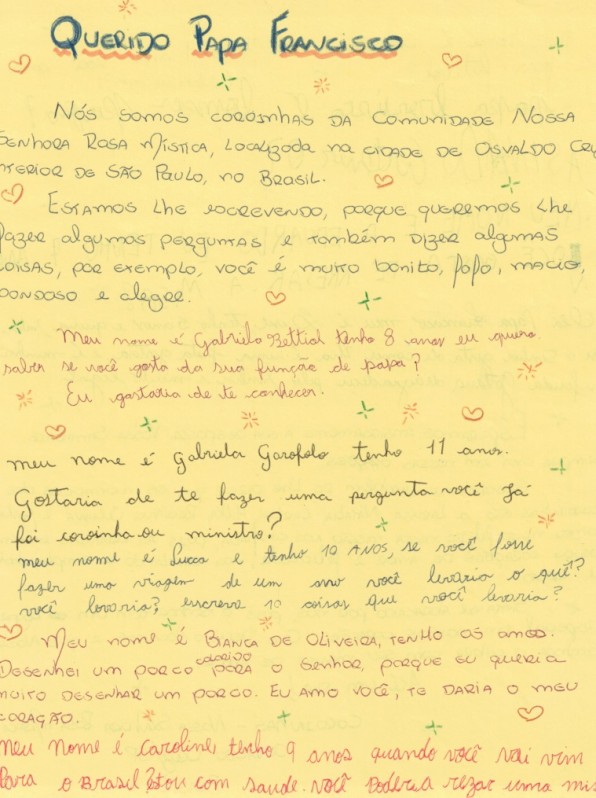 QUERIDO PAPA FRANCISCO
NÓS SOMOS COROINHAS DA COMUNIDADE NOSSA
SENHORA ROSA MÍSTICA, LOCALIZADA NA CIDADE DE OSVALDO CRU
NTERIOR DE SÃO PAULO, NO BRASIL.
ESTAMOS LHE ESCREVENDO, PORQUE QUEREMOS LHE
FAZER ALGUMAS PERGUNTAS E TAMBÉM DIZER ALGUMAS
COISAS, POR EXEMPLO, VOCÊ É MUITO BONITO, FOFO, MACIO,
BONDOSO E ALEGRE.
Meu nome é Gabriela tenho 8 anos eu quero
saber se você gosta da sua função de papa?
Eu gostaria de te conhecer.
meu nome é Gabriela Garofolo tenho 11 anos.
Gostaria de te fazer uma pergunta você já
foi coroinha ou ministro?
meu nome é Lucca e tenho 10 ANOS, se você fosse
fazer uma viagem de um ano você levaria o quê?
você levaria? escreva 10 coisas que você levaria?
MEU NOME É BIANCA DE OLIVEIRA, TENHO 05 ANOS.
DESENHEI UM PORCO COLORIDO PARA O SENHOR, PORQUE EU QUERIA
MUITO DESENHAR UM PORCO. EU AMO VOCÊ, TE DARIA O MEU
CORAÇÃO.
Meu Nome é Caroline, tenho 9 anos quando você vai vim
Para o BRasil? Estou com saude. você Poderia rezar uma mis